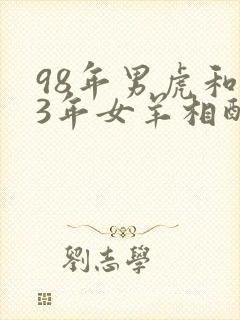 98年男虎和
3年女羊相配
劉志學